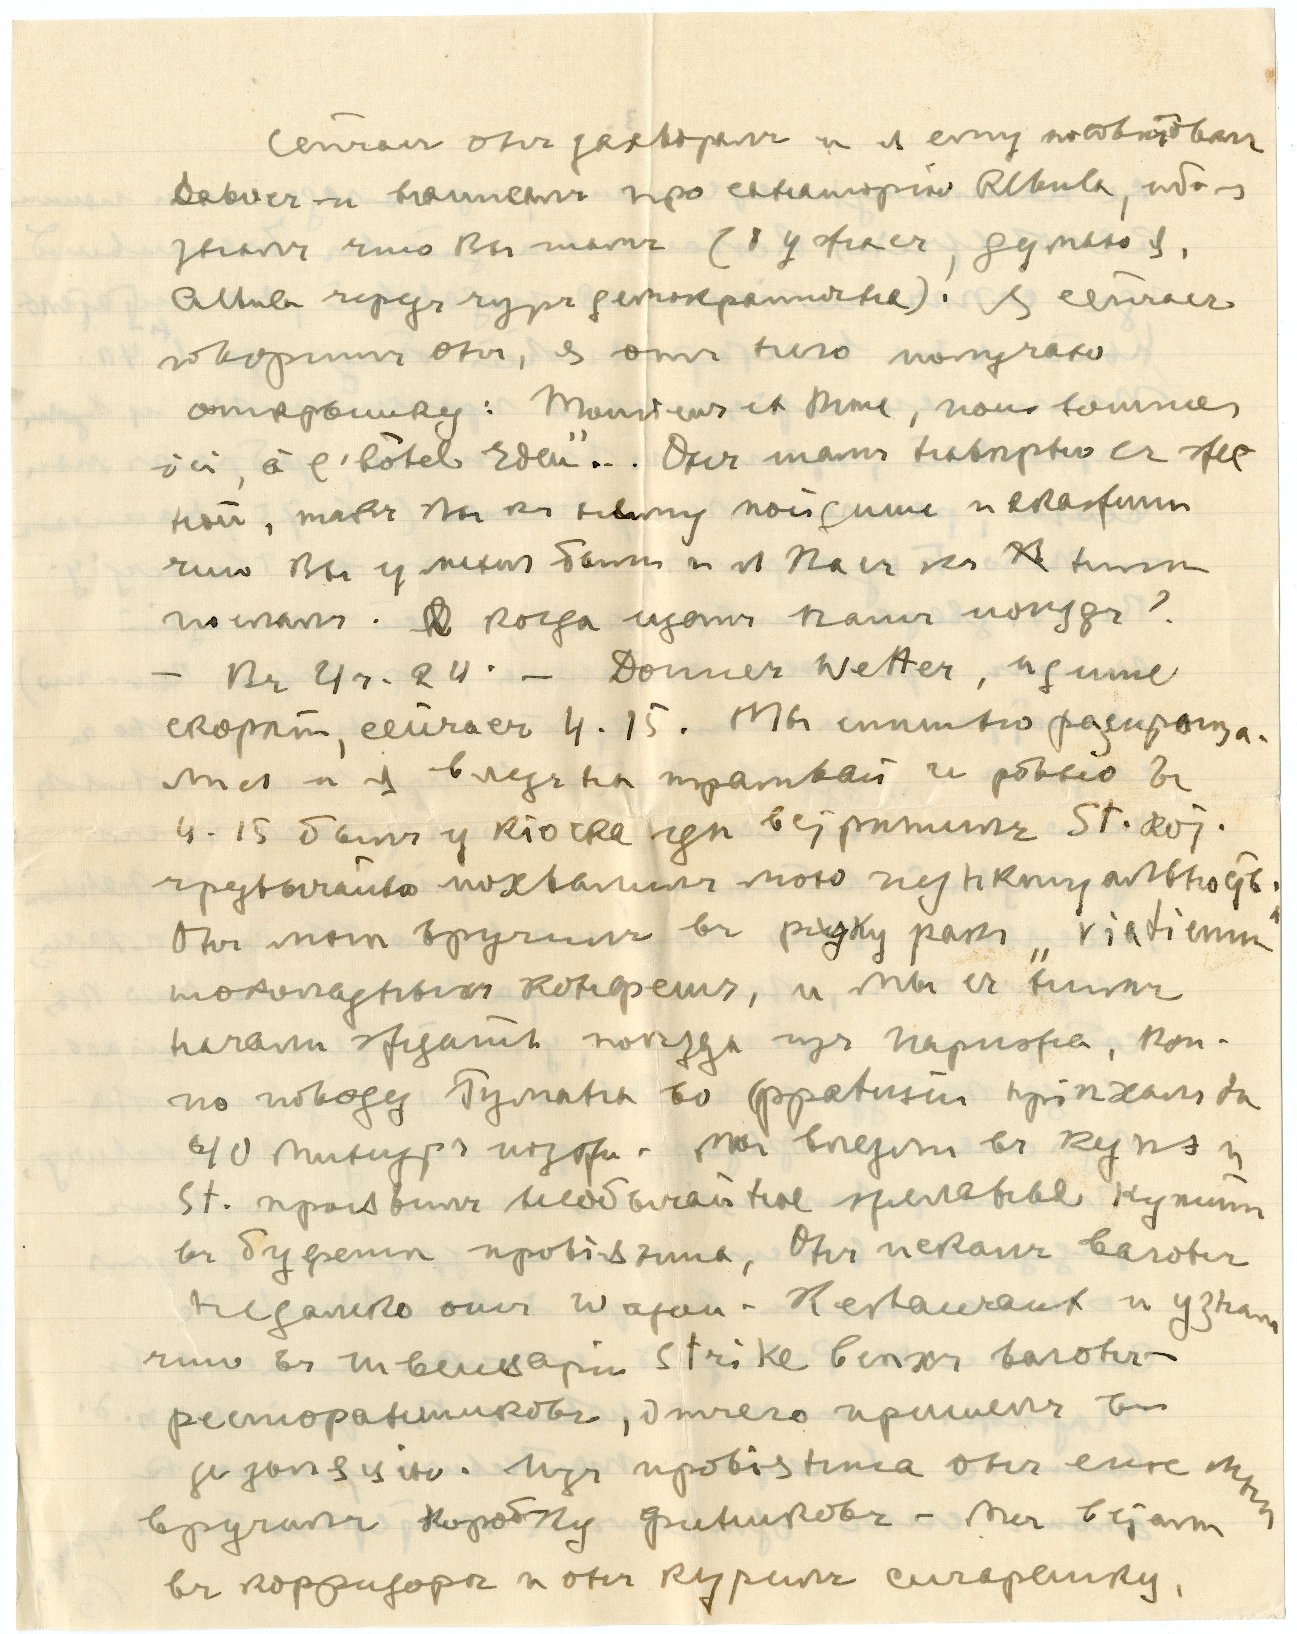 Сейчасъ онъ захворалъ и я ему посовѣтовалъ
Davos и написалъ про санаторію Albula, ибо я
зналъ что Вы тамъ (я ужасъ, думаю я,
Albula черезъ чуръ демократична). Я сейчасъ
говоритъ онъ, я отъ него получаю
открытку: Monsieur et Mme, nous sommes
ici, à l'hôtel Eden"... Онъ тамъ навѣрно съ же
ной, такъ Вы къ нему пойдите и скажите
что Вы у меня были и я Васъ къ нимъ
послалъ. А когда идетъ Вашъ поѣздъ?
– Въ 4 ч. 24. – Donner Wetter, идите
скорѣй, сейчасъ 4.15. Мы спѣшно распроща-
лись и я влезъ на трамвай и ровно въ
4.15 былъ у кіоска гдѣ встрѣтилъ St.
чрезвычайно похвалилъ мою пунктуальность.
Онъ мнѣ вручилъ въ руку „viaticum"
шоколадныхъ конфетъ, и мы съ нимъ
начали ждать поѣзда изъ Парижа, кот.
по поводу тумана во Франціи пріѣхалъ на
40 минутъ позже. Мы влезли въ купэ и
St. проявилъ необычайное желаніе купить
въ буфетѣ провіянта, Онъ искалъ вагонъ
недалеко отъ Wagon-Restaurant и узналъ
что въ Швейцаріи Strike всѣхъ вагонъ-
ресторанщиковъ, отчего пришелъ въ
Изъ провіянта онъ еще мнѣ
вручилъ коробку финиковъ – Мы встали
въ корридорѣ и онъ курилъ сигаретку,